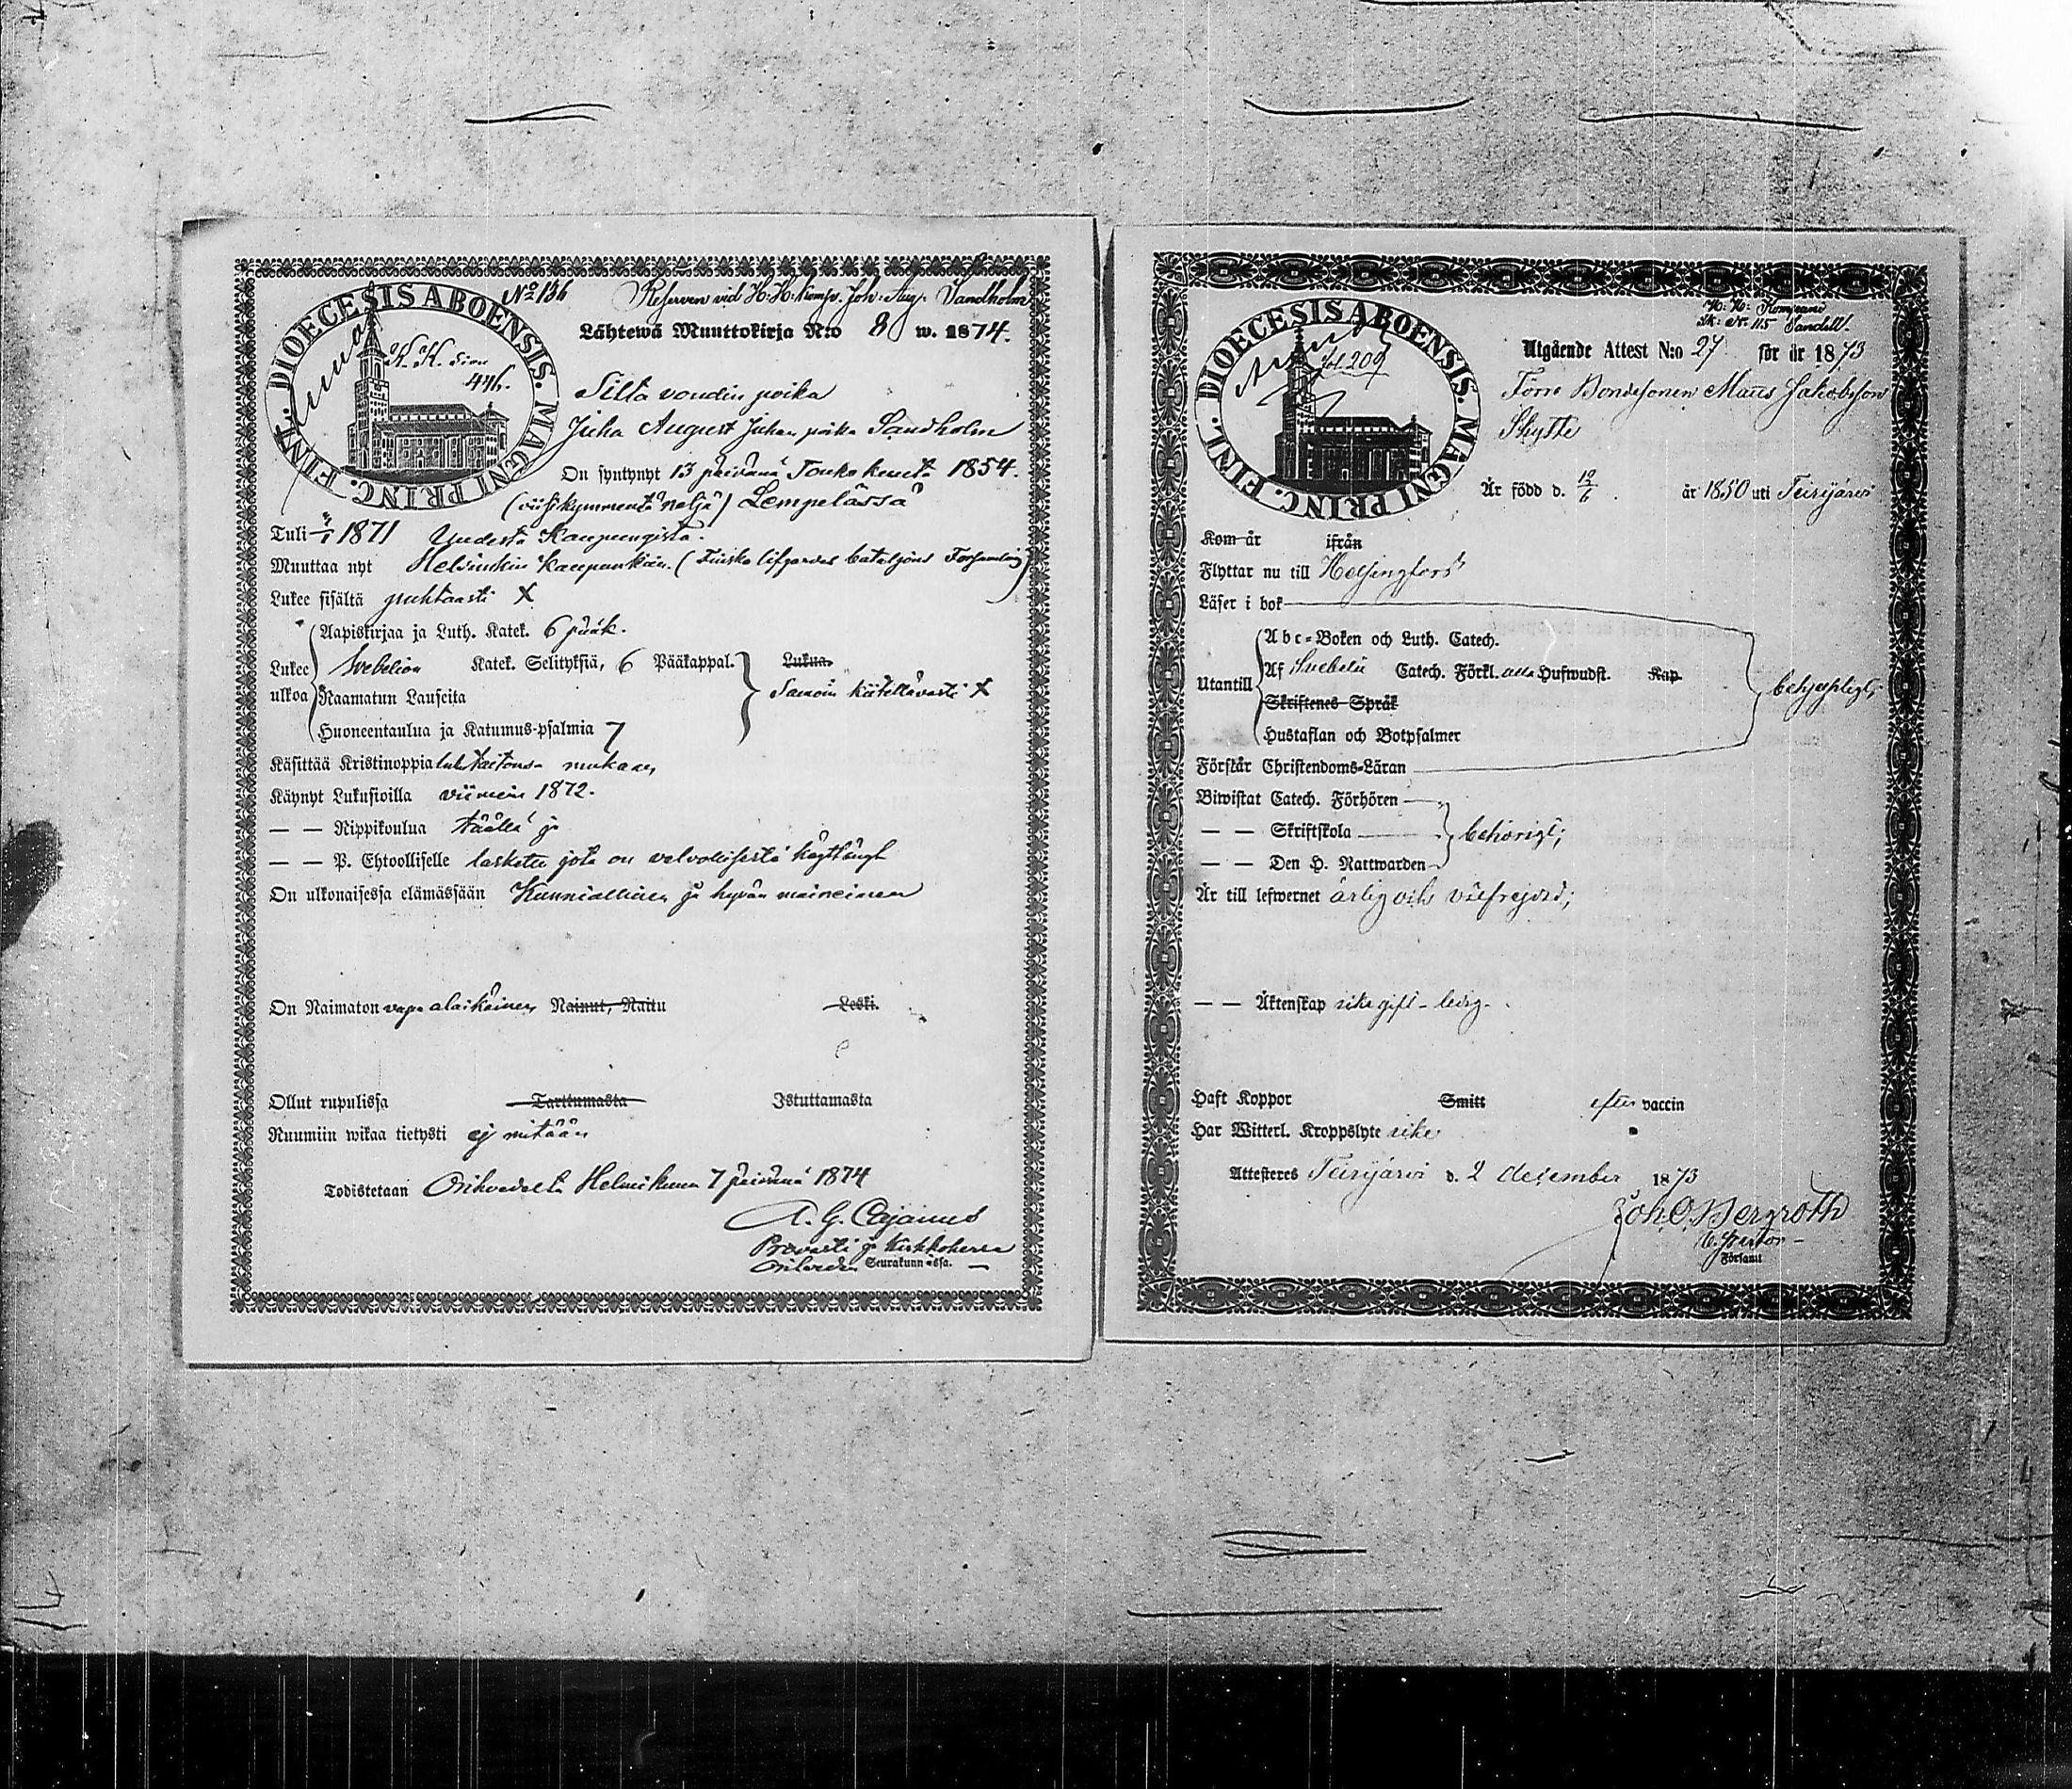 DIOECESIS ABOENSIS. MAGNI PRINC. FINL.
No 136 Reserven vid H: H: komp. Joh: Aug: Sandholm
Lähtewä Muuttokirja N:o 8 w. 1874.
K. K. Sivu
446.
Silta voudin poika
Juha August Juhan poika Sandholm
On syntynyt 13 päivänä Toukokuuta 1854.
(viisikymmentä neljä) Lempelässä
Tuli 1871 Uudesta Kaupungista.
Muuttaa nyt Helsinkin kaupunkiin. (Finska lifgardes bataljons Församling)
Lukee sisältä puhtaasti X
Aapiskirjaa ja Luth. Katek. 6 pääk.
Lukee ulkoa
Svebelion Katek. Selityksiä, 6 Pääkappal. Lukua.
Raamatun Lauseita Samoin kiitettävästi X
Huoneentaulua ja Katumus-psalmia 7
Käsittää Kristinoppia lukutaitonsa mukaan
Käynyt Lukusioilla viimein 1872.
— — Rippikoulua täällä ja
— — P. Ehtoolliselle laskettu jota on velvollisesti käyttänyt
On ulkonaisessa elämässään Kunniallinen ja hyvän maineinen
On Naimaton vapa alaikäinen Nainut, Naitu Leski.
Ollut rupulissa Tarttumasta Istuttamasta
Ruumiin wikaa tietysti ej mitään
Todistetaan Orihvedeltä Helmikuun 7 päivänä 1874
A. G. Cajanus
Provasti ja Kirkkoherra
Oriveden Seurakunnassa.
DIOECESIS ABOENSIS. MAGNI PRINC. FINL.
H: H: Kompani
Sk: Nr. 115 Sandell.
fol. 209
Utgående Attest N:o 27 för år 1873
Förre Bondesonen Matts Jakobsson
Skytte
Är född d. 12/6 år 1850 uti Teirijärvi
Kom år ifrån
Flyttar nu till Helsingfors
Läser i bok
Abc-Boken och Luth. Catech.
Utantill
Af Svebelii Catech. Förkl. alla Hufwudst. Kap
Skriftenes Språk behjelpligt;
Hustaflan och Botpsalmer
Förstår Christendoms-Läran
Biwistat Catech. Förhören
— — Skriftskola behörigt;
— — Den H. Nattwarden
Är till lefwernet ärlig och välfrejdad;
— — Äktenskap icke gift - ledig.
Haft Koppor Smitt efter vaccin
Har Witterl. Kroppslyte icke
Attesteres Teirijärvi d. 2 december 1873
Joh. O. Bergroth
V. Pastor
Församl